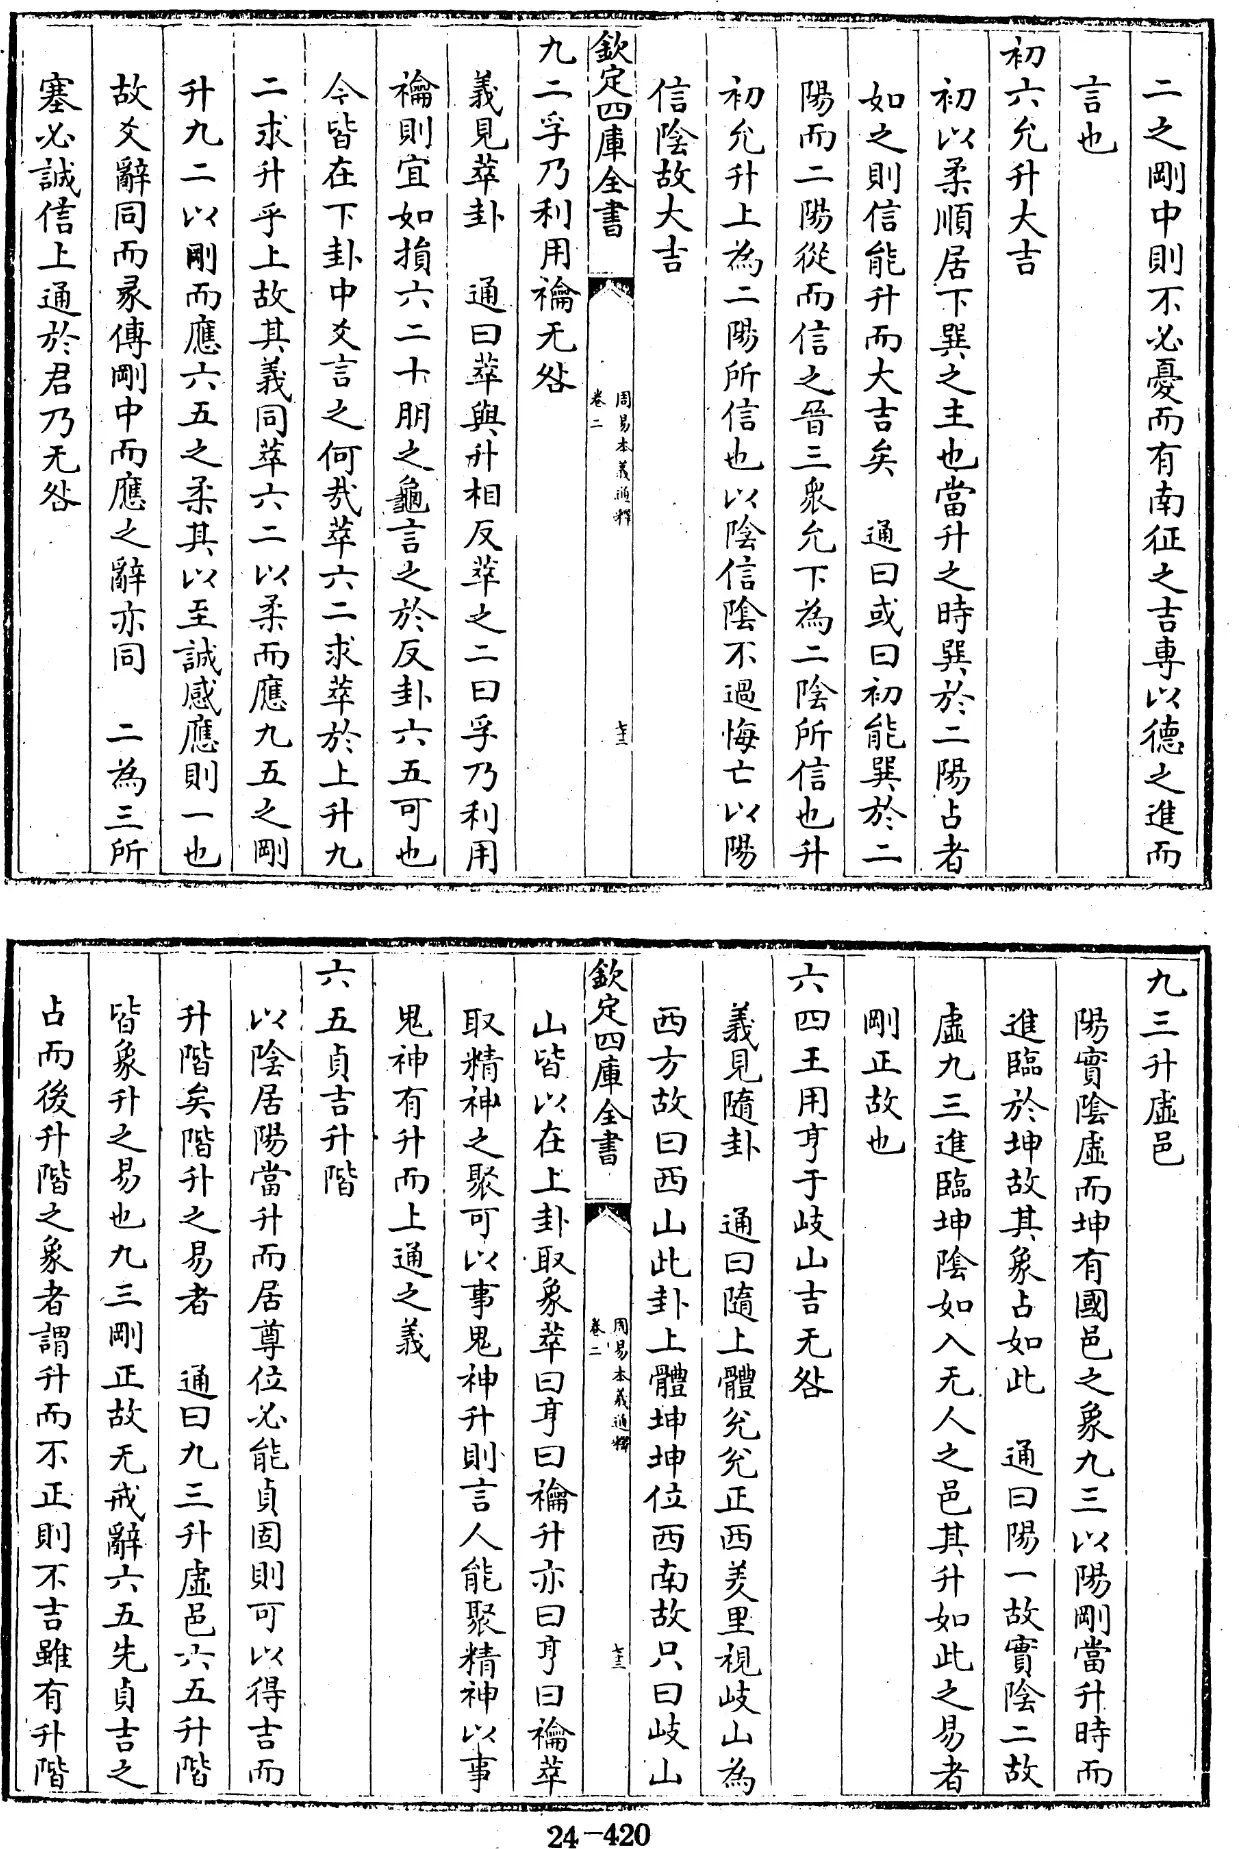 二之剛中則不必憂而有南征之吉專以德之進而
言也
初六允升大吉
初以柔順居下巽之主也當升之時巽於二陽占者
如之則信能升而大吉矣　通曰或曰初能巽於二
陽而二陽從而信之晉三衆允下為二陰所信也升
初允升上為二陽所信也以陰信陰不過悔亡以陽
信陰故大吉
欽定四庫全書
周易本義通釋
卷二
七三
九二孚乃利用禴无咎
義見萃卦　通曰萃與升相反萃之二曰孚乃利用
禴則宜如損六二十朋之龜言之於反卦六五可也
今皆在下卦中爻言之何㢤萃六二求萃於上升九
二求升乎上故其義同萃六二以柔而應九五之剛
升九二以剛而應六五之柔其以至誠感應則一也
故爻辭同而彖傳剛中而應之辭亦同　二為三所
塞必誠信上通於君乃无咎
九三升虛邑
陽實陰虛而坤有國邑之象九三以陽剛當升時而
進臨於坤故其象占如此　通曰陽一故實陰二故
虛九三進臨坤陰如入无人之邑其升如此之易者
剛正故也
六四王用亨于岐山吉无咎
義見隨卦　通曰隨上體兊兊正西羑里視岐山為
西方故曰西山此卦上體坤坤位西南故只曰岐山
欽定四庫全書
周易本義通釋
卷二
七三
山皆以在上卦取象萃曰亨曰禴升亦曰亨曰禴萃
取精神之聚可以事鬼神升則言人能聚精神以事
鬼神有升而上通之義
六五貞吉升階
以陰居陽當升而居尊位必能貞固則可以得吉而
升階矣階升之易者　通曰九三升虛邑六五升階
皆象升之易也九三剛正故无戒辭六五先貞吉之
占而後升階之象者謂升而不正則不吉雖有升階
24-420